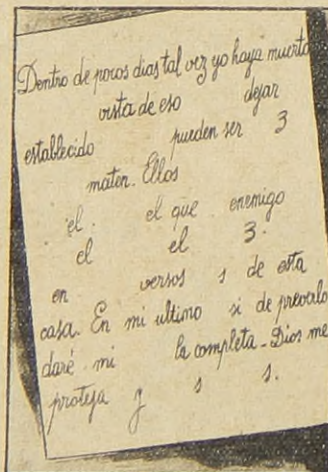 Dentro de pocos dias tal vez yo haya muerto
vista de eso dejar
establecido pueden ser 3
maten. Ellos
el. el que enemigo
el el 3.
en versos s de esta
casa. En mi ultimo si de prevalo
daré mi la completa - Dios me
proteja y s s.